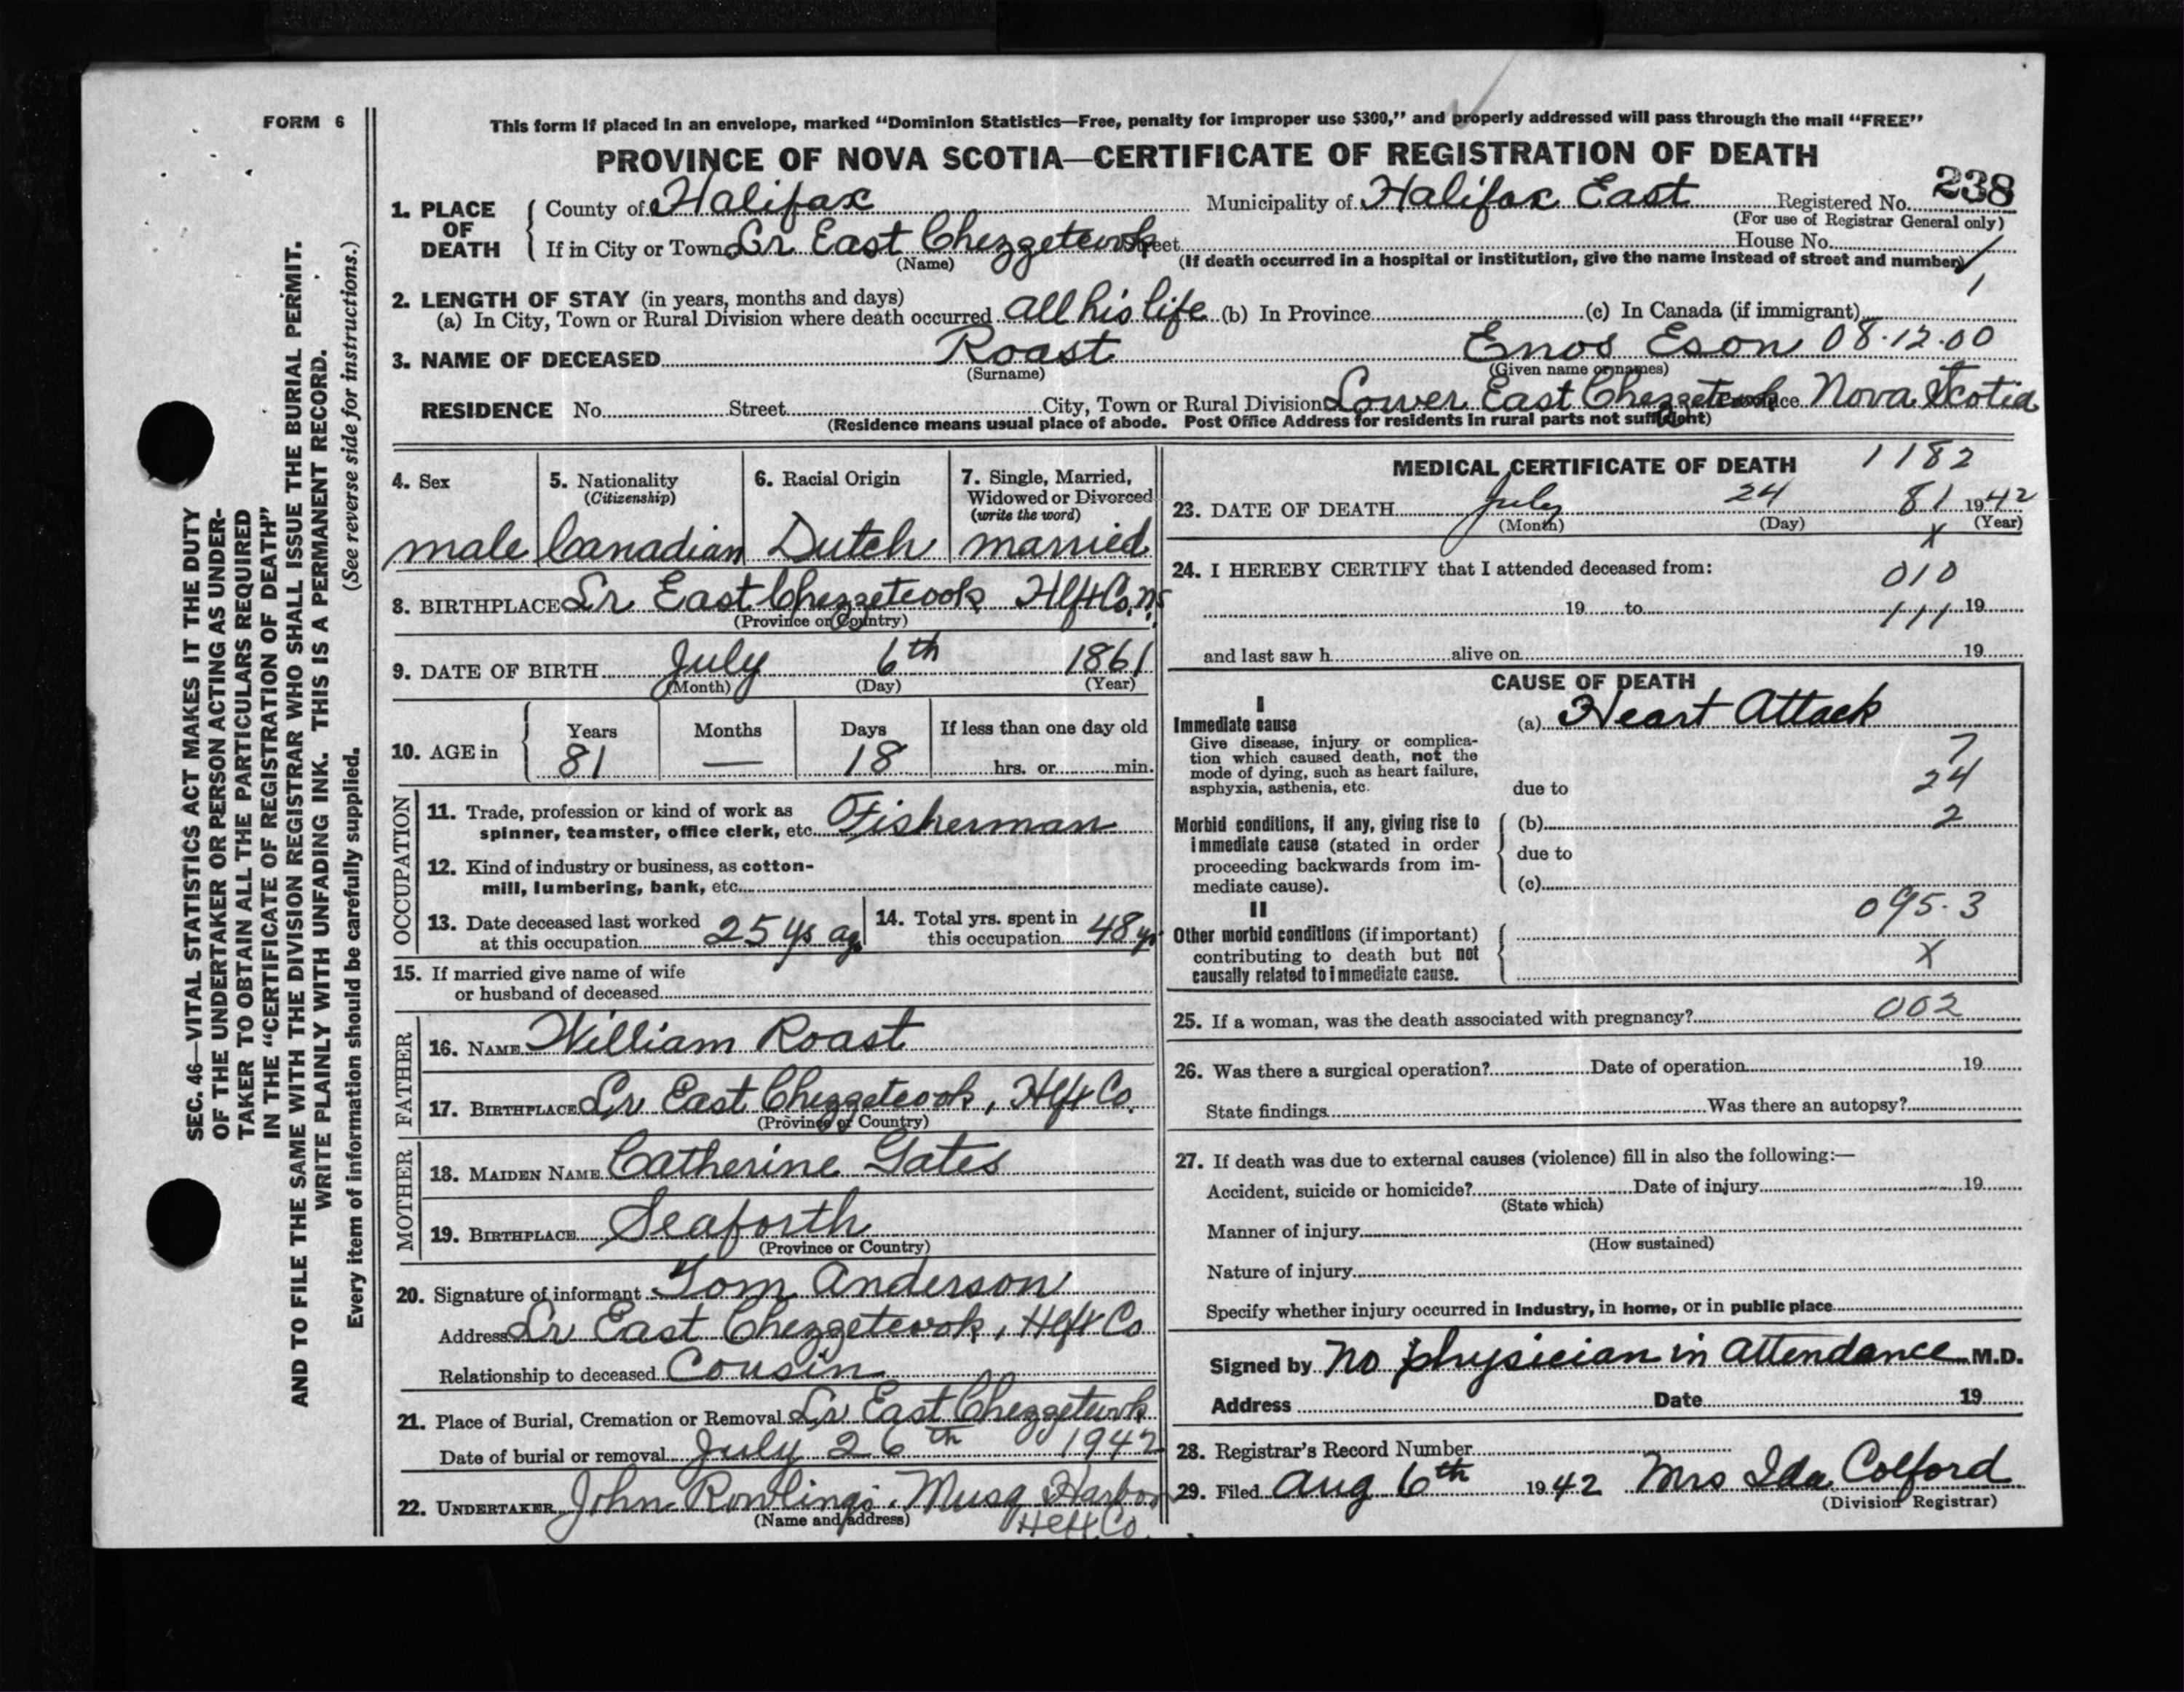 FORM 6
This form if placed in an envelope, marked "Dominion Statistics—Free, penalty for improper use $300," and properly addressed will pass through the mail "FREE"
PROVINCE OF NOVA SCOTIA—CERTIFICATE OF REGISTRATION OF DEATH
238
1. PLACE OF DEATH { County of Halifax Municipality of Halifax East Registered No.
(For use of Registrar General only)
If in City or Town Lr East Chezzetcook Street House No.
(Name) (If death occurred in a hospital or institution, give the name instead of street and number)
2. LENGTH OF STAY (in years, months and days)
(a) In City, Town or Rural Division where death occurred all his life (b) In Province (c) In Canada (if immigrant)
3. NAME OF DECEASED Roast Enos Eson 08.12.00
(Surname) (Given name or names)
RESIDENCE No. Street City, Town or Rural Division Lower East Chezzetcook Province Nova Scotia
(Residence means usual place of abode. Post Office Address for residents in rural parts not sufficient)
4. Sex 5. Nationality (Citizenship) 6. Racial Origin 7. Single, Married, Widowed or Divorced (write the word)
male Canadian Dutch married
8. BIRTHPLACE Lr East Chezzetcook Hlfx Co. N.S.
(Province or Country)
9. DATE OF BIRTH July 6th 1861
(Month) (Day) (Year)
10. AGE in { Years Months Days If less than one day old
81 — 18 hrs. or min.
OCCUPATION
11. Trade, profession or kind of work as
spinner, teamster, office clerk, etc. Fisherman
12. Kind of industry or business, as cotton-
mill, lumbering, bank, etc.
13. Date deceased last worked
at this occupation 25 ys ago
14. Total yrs. spent in
this occupation 48 yrs
15. If married give name of wife
or husband of deceased
FATHER
16. NAME William Roast
17. BIRTHPLACE Lr East Chezzetcook, Hlfx Co.
(Province or Country)
MOTHER
18. MAIDEN NAME Catherine Gates
19. BIRTHPLACE Seaforth
(Province or Country)
20. Signature of informant Tom Anderson
Address Lr East Chezzetcook, Hlfx Co
Relationship to deceased Cousin
21. Place of Burial, Cremation or Removal Lr East Chezzetcook
Date of burial or removal July 26th 1942
22. UNDERTAKER John Rowlings, Musq Harbor
(Name and address) Hlfx Co.
MEDICAL CERTIFICATE OF DEATH 1182
23. DATE OF DEATH July 24 81 1942
(Month) (Day) (Year)
x
24. I HEREBY CERTIFY that I attended deceased from:
010
19 to 19
111
and last saw h alive on 19
CAUSE OF DEATH
I
Immediate cause (a) Heart Attack
Give disease, injury or complica-
tion which caused death, not the
mode of dying, such as heart failure,
asphyxia, asthenia, etc.
7
24
due to
Morbid conditions, if any, giving rise to
immediate cause (stated in order
proceeding backwards from im-
mediate cause).
(b) 2
due to
(c)
II
095.3
Other morbid conditions (if important)
contributing to death but not
causally related to immediate cause.
X
25. If a woman, was the death associated with pregnancy? 002
26. Was there a surgical operation? Date of operation 19
State findings Was there an autopsy?
27. If death was due to external causes (violence) fill in also the following:—
Accident, suicide or homicide? Date of injury 19
(State which)
Manner of injury
(How sustained)
Nature of injury
Specify whether injury occurred in Industry, in home, or in public place
Signed by No physician in attendance M.D.
Address Date 19
28. Registrar's Record Number
29. Filed Aug 6th 1942 Mrs Ida Colford
(Division Registrar)
SEC. 46—VITAL STATISTICS ACT MAKES IT THE DUTY
OF THE UNDERTAKER OR PERSON ACTING AS UNDER-
TAKER TO OBTAIN ALL THE PARTICULARS REQUIRED
IN THE "CERTIFICATE OF REGISTRATION OF DEATH"
AND TO FILE THE SAME WITH THE DIVISION REGISTRAR WHO SHALL ISSUE THE BURIAL PERMIT.
WRITE PLAINLY WITH UNFADING INK. THIS IS A PERMANENT RECORD.
(See reverse side for instructions.)
Every item of information should be carefully supplied.